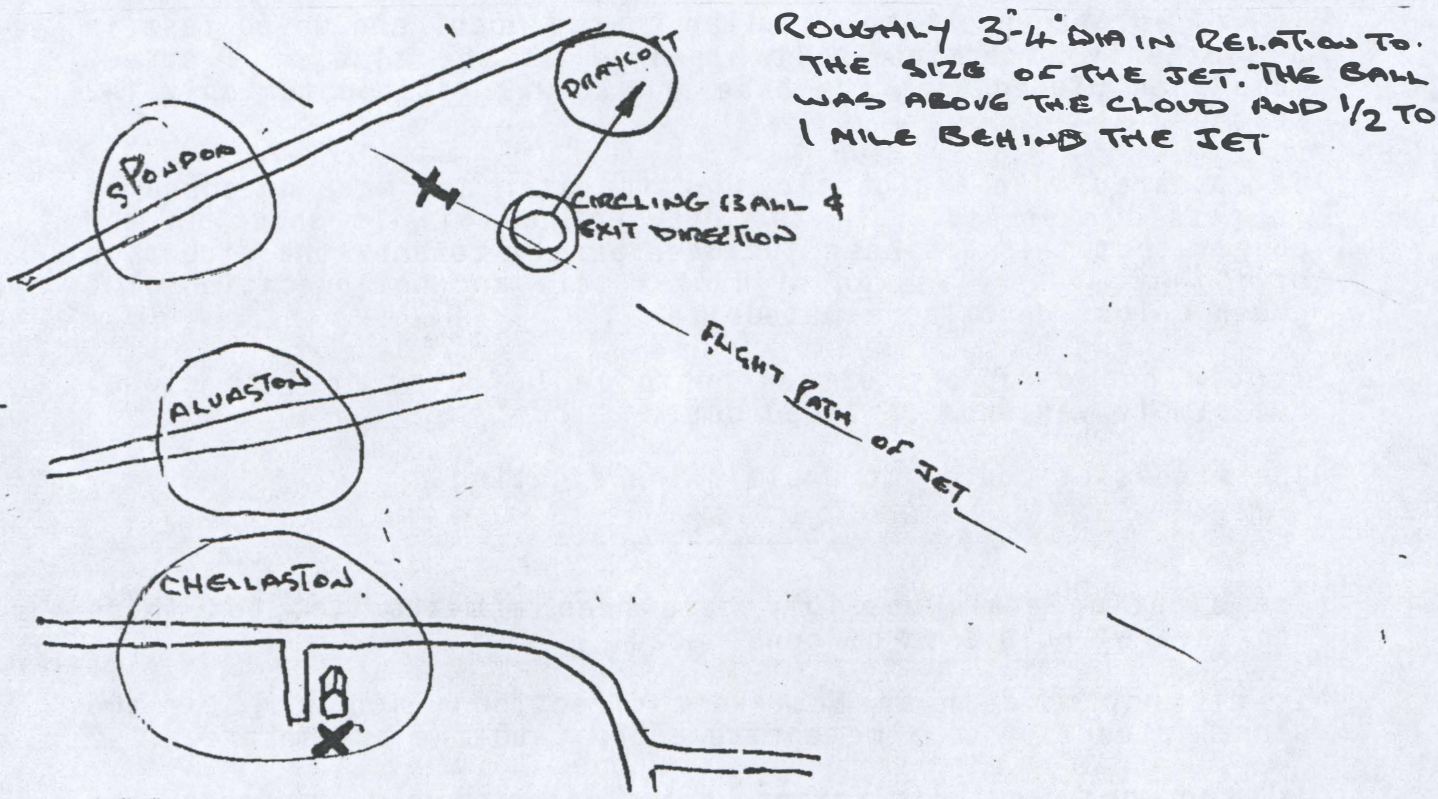 ROUGHLY 3"-4" DIA IN RELATION TO.
THE SIZE OF THE JET. THE BALL
WAS ABOVE THE CLOUD AND 1/2 TO
1 MILE BEHIND THE JET
DRAYCOTT
SPONDON
CIRCLING BALL &
EXIT DIRECTION
FLIGHT PATH OF JET
ALVASTON
CHELLASTON